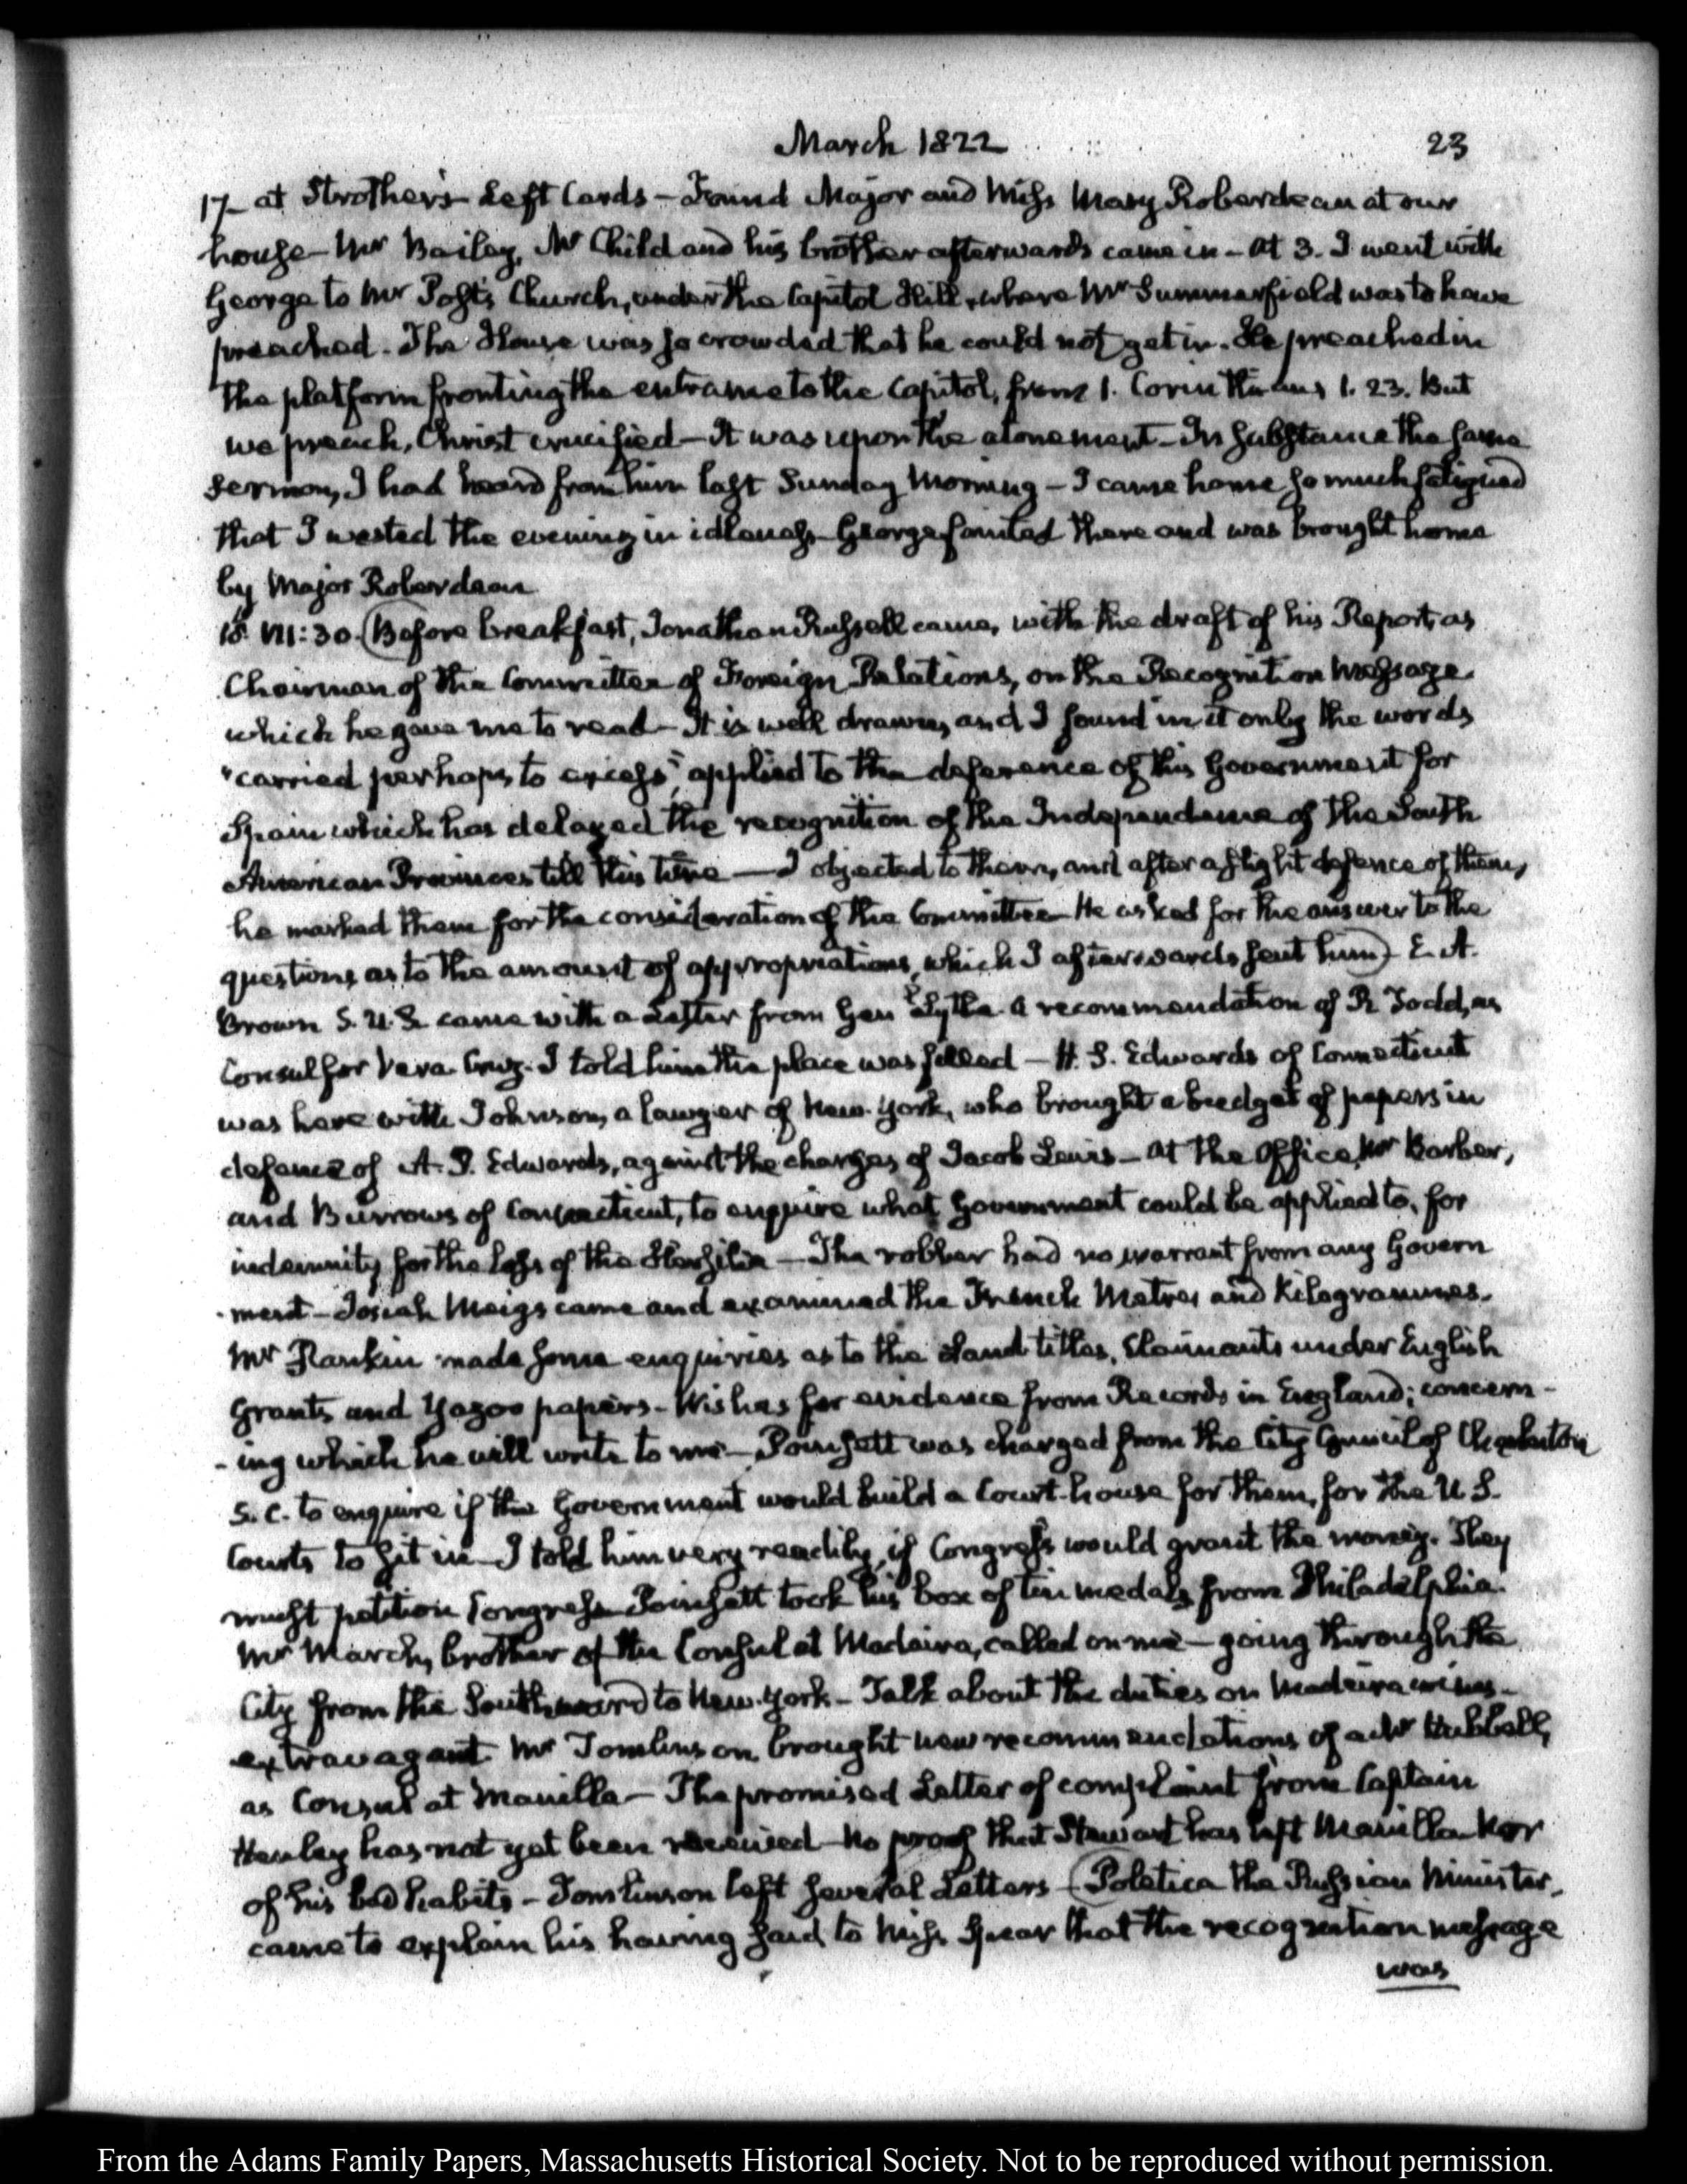 March 1822
23
17_ at Strother's Left Cards – Found Major and Miss Mary Roberdeau at our
house – Mr Bailey, Mr Child and his brother afterwards came in – At 3. I went with
George to Mr Post's Church, under the Capitol Hill, where Mr Summerfield was to have
preached. The House was so crowded that he could not get in. He preached in
the platform fronting the entrance to the Capitol, from 1. Corinthians 1. 23. But
we preach, Christ crucified – It was upon the atonement – In substance the same
sermon, I had heard from him last Sunday Morning – I came home so much fatigued
that I wasted the evening in idleness – George fainted there and was brought home
by Major Roberdeau
18. VII:30. (Before breakfast, Jonathan Russell came, with the draft of his Report, as
Chairman of the Committee of Foreign Relations, on the Recognition Message.
which he gave me to read – It is well drawn, and I found in it only the words
"carried perhaps to excess", applied to the deference of this Government for
Spain which has delayed the recognition of the Independence of the South
American Provinces till this time — I objected to them, and after a slight defence of them,
he marked them for the consideration of the Committee – He asked for the answer to the
questions as to the amount of appropriations, which I afterwards sent him) – E. A.
Brown S. U. S. came with a Letter from Genl Lytle. a recommendation of R Todd, as
Consul for Vera Cruz. I told him the place was filled – H. S. Edwards of Connecticut
was here with Johnson, a lawyer of New York, who brought a budget of papers in
defence of A. P. Edwards, against the charges of Jacob Lewis – At the Office, Mr Barber,
and Burrows of Connecticut, to enquire what Government could be applied to, for
indemnity for the loss of the Hersilia – The robber had no warrant from any Govern
-ment – Josiah Meigs came and examined the French Metres and Kilogrammes.
Mr Rankin made some enquiries as to the Land titles, Claimants under English
Grants and Yazoo papers – Wishes for evidence from Records in England; concern-
-ing which he will write to me – Poinsett was charged from the City Council of Charleston
S. C. to enquire if the Government would build a Court-house for them, for the U. S.
Courts to sit in – I told him very readily, if Congress would grant the money. They
must petition Congress – Poinsett took his box of tin medals from Philadelphia.
Mr March, brother of the Consul at Madeira, called on me – going through the
City from the Southward to New York – Talk about the duties on Madeira wines –
extravagant. Mr Tomlinson brought new recommendations of a Mr Hubbell,
as Consul at Manilla – The promised Letter of complaint from Captain
Henley has not yet been received – No proof that Stewart has left Manilla – Nor
of his bad habits – Tomlinson left several Letters – (Poletica the Russian Minister,
came to explain his having said to Miss Spear that the recognition message
was
From the Adams Family Papers, Massachusetts Historical Society. Not to be reproduced without permission.